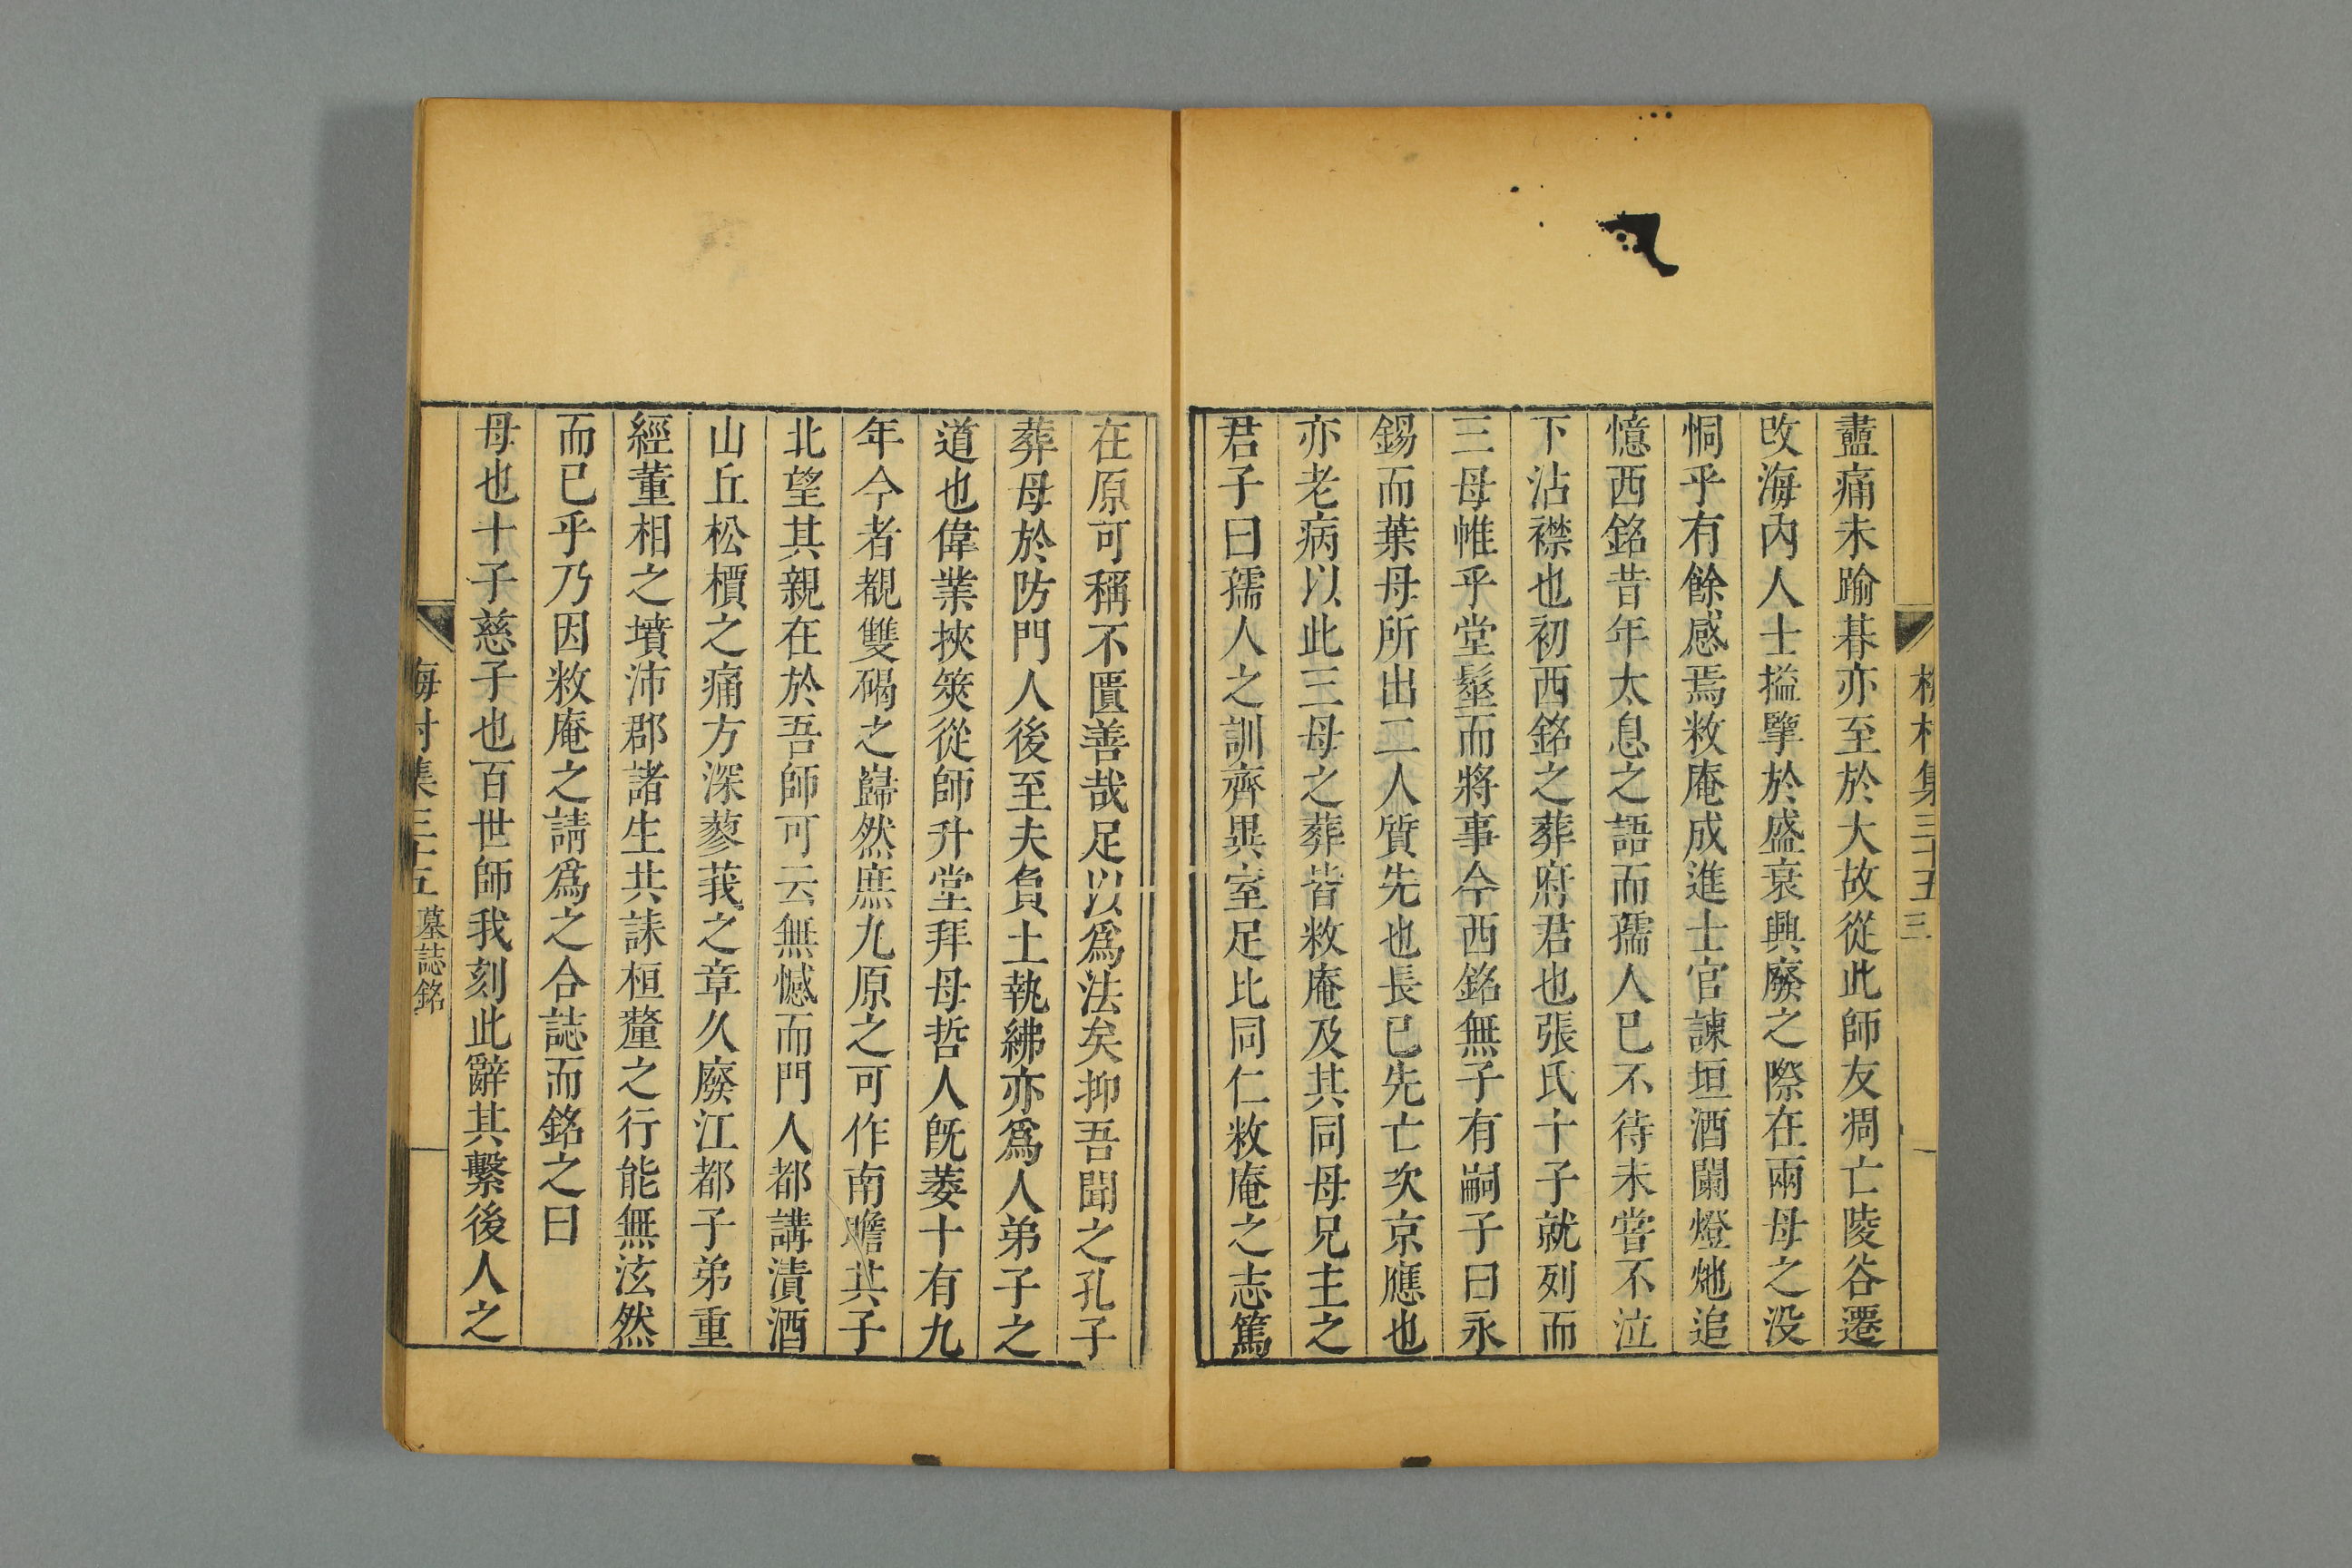 梅村集三十五 三
衋痛未踰朞亦至於大故從此師友凋亡陵谷遷
改海內人士搤擥於盛衰興廢之際在兩母之没
恫乎有餘感焉救庵成進士官諫垣酒闌燈灺追
憶西銘昔年太息之語而孺人已不待未嘗不泣
下沾襟也初西銘之葬府君也張氏十子就列而
三母帷乎堂髽而將事今西銘無子有嗣子曰永
錫而葉母所出二人質先也長已先亡次京應也
亦老病以此三母之葬皆救庵及其同母兄主之
君子曰孺人之訓齊異室足比同仁救庵之志篤
在原可稱不匱善哉足以爲法矣抑吾聞之孔子
葬母於防門人後至夫負土執紼亦爲人弟子之
道也偉業挾筴從師升堂拜母哲人既萎十有九
年今者覩雙碣之巋然庶九原之可作南瞻其子
北望其親在於吾師可云無憾而門人都講漬酒
山丘松檟之痛方深蓼莪之章久廢江都子弟重
經董相之墳沛郡諸生共誄桓釐之行能無泫然
而已乎乃因救庵之請爲之合誌而銘之曰
母也十子慈子也百世師我刻此辭其繫後人之
梅村集三十五 墓誌銘